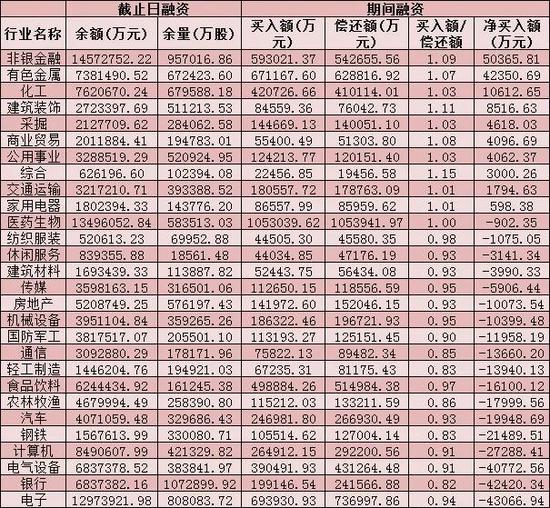 截止日融资 期间融资
行业名称 余额(万元) 余量(万股) 买入额(万元) 偿还额(万元) 买入额/偿还额 净买入额(万元)
非银金融 14572752.22 957016.86 593021.37 542655.56 1.09 50365.81
有色金属 7381490.52 672423.60 671167.60 628816.92 1.07 42350.69
化工 7620670.24 679588.18 420726.66 410114.01 1.03 10612.65
建筑装饰 2723397.69 511213.53 84559.36 76042.73 1.11 8516.63
采掘 2127709.62 284062.58 144669.13 140051.10 1.03 4618.03
商业贸易 2011884.41 194783.01 55400.49 51303.80 1.08 4096.69
公用事业 3288519.29 520924.95 124213.77 120151.40 1.03 4062.37
综合 626196.60 102394.08 22456.85 19456.58 1.15 3000.26
交通运输 3217210.71 393388.52 180557.72 178763.09 1.01 1794.63
家用电器 1802394.33 143776.20 86557.99 85959.62 1.01 598.38
医药生物 13496052.84 583513.03 1053039.62 1053941.97 1.00 -902.35
纺织服装 520613.23 69952.88 44505.30 45580.35 0.98 -1075.05
休闲服务 839355.88 18561.48 44034.85 47176.19 0.93 -3141.34
建筑材料 1693439.33 113887.82 52443.75 56434.08 0.93 -3990.33
传媒 3598163.15 316501.06 112650.15 118556.59 0.95 -5906.44
房地产 5208749.25 576197.43 141972.60 152046.15 0.93 -10073.54
机械设备 3951104.84 359265.26 186322.46 196721.93 0.95 -10399.48
国防军工 3817517.07 205501.10 113193.27 125151.45 0.90 -11958.19
通信 3092880.29 178171.96 75822.13 89482.34 0.85 -13660.20
轻工制造 1446204.76 194921.03 67235.31 81175.43 0.83 -13940.13
食品饮料 6244434.92 161245.38 498884.26 514984.38 0.97 -16100.12
农林牧渔 4679994.49 258390.80 115212.03 133211.59 0.86 -17999.56
汽车 4071059.48 329686.43 246981.80 266930.49 0.93 -19948.69
钢铁 1567613.99 330080.71 105514.62 127004.14 0.83 -21489.51
计算机 8490607.99 421329.82 264912.15 292200.56 0.91 -27288.41
电气设备 6837378.52 383841.97 390491.93 431264.48 0.91 -40772.56
银行 6837382.16 1072899.92 199146.54 241566.88 0.82 -42420.34
电子 12973921.98 808083.72 693930.93 736997.86 0.94 -43066.94